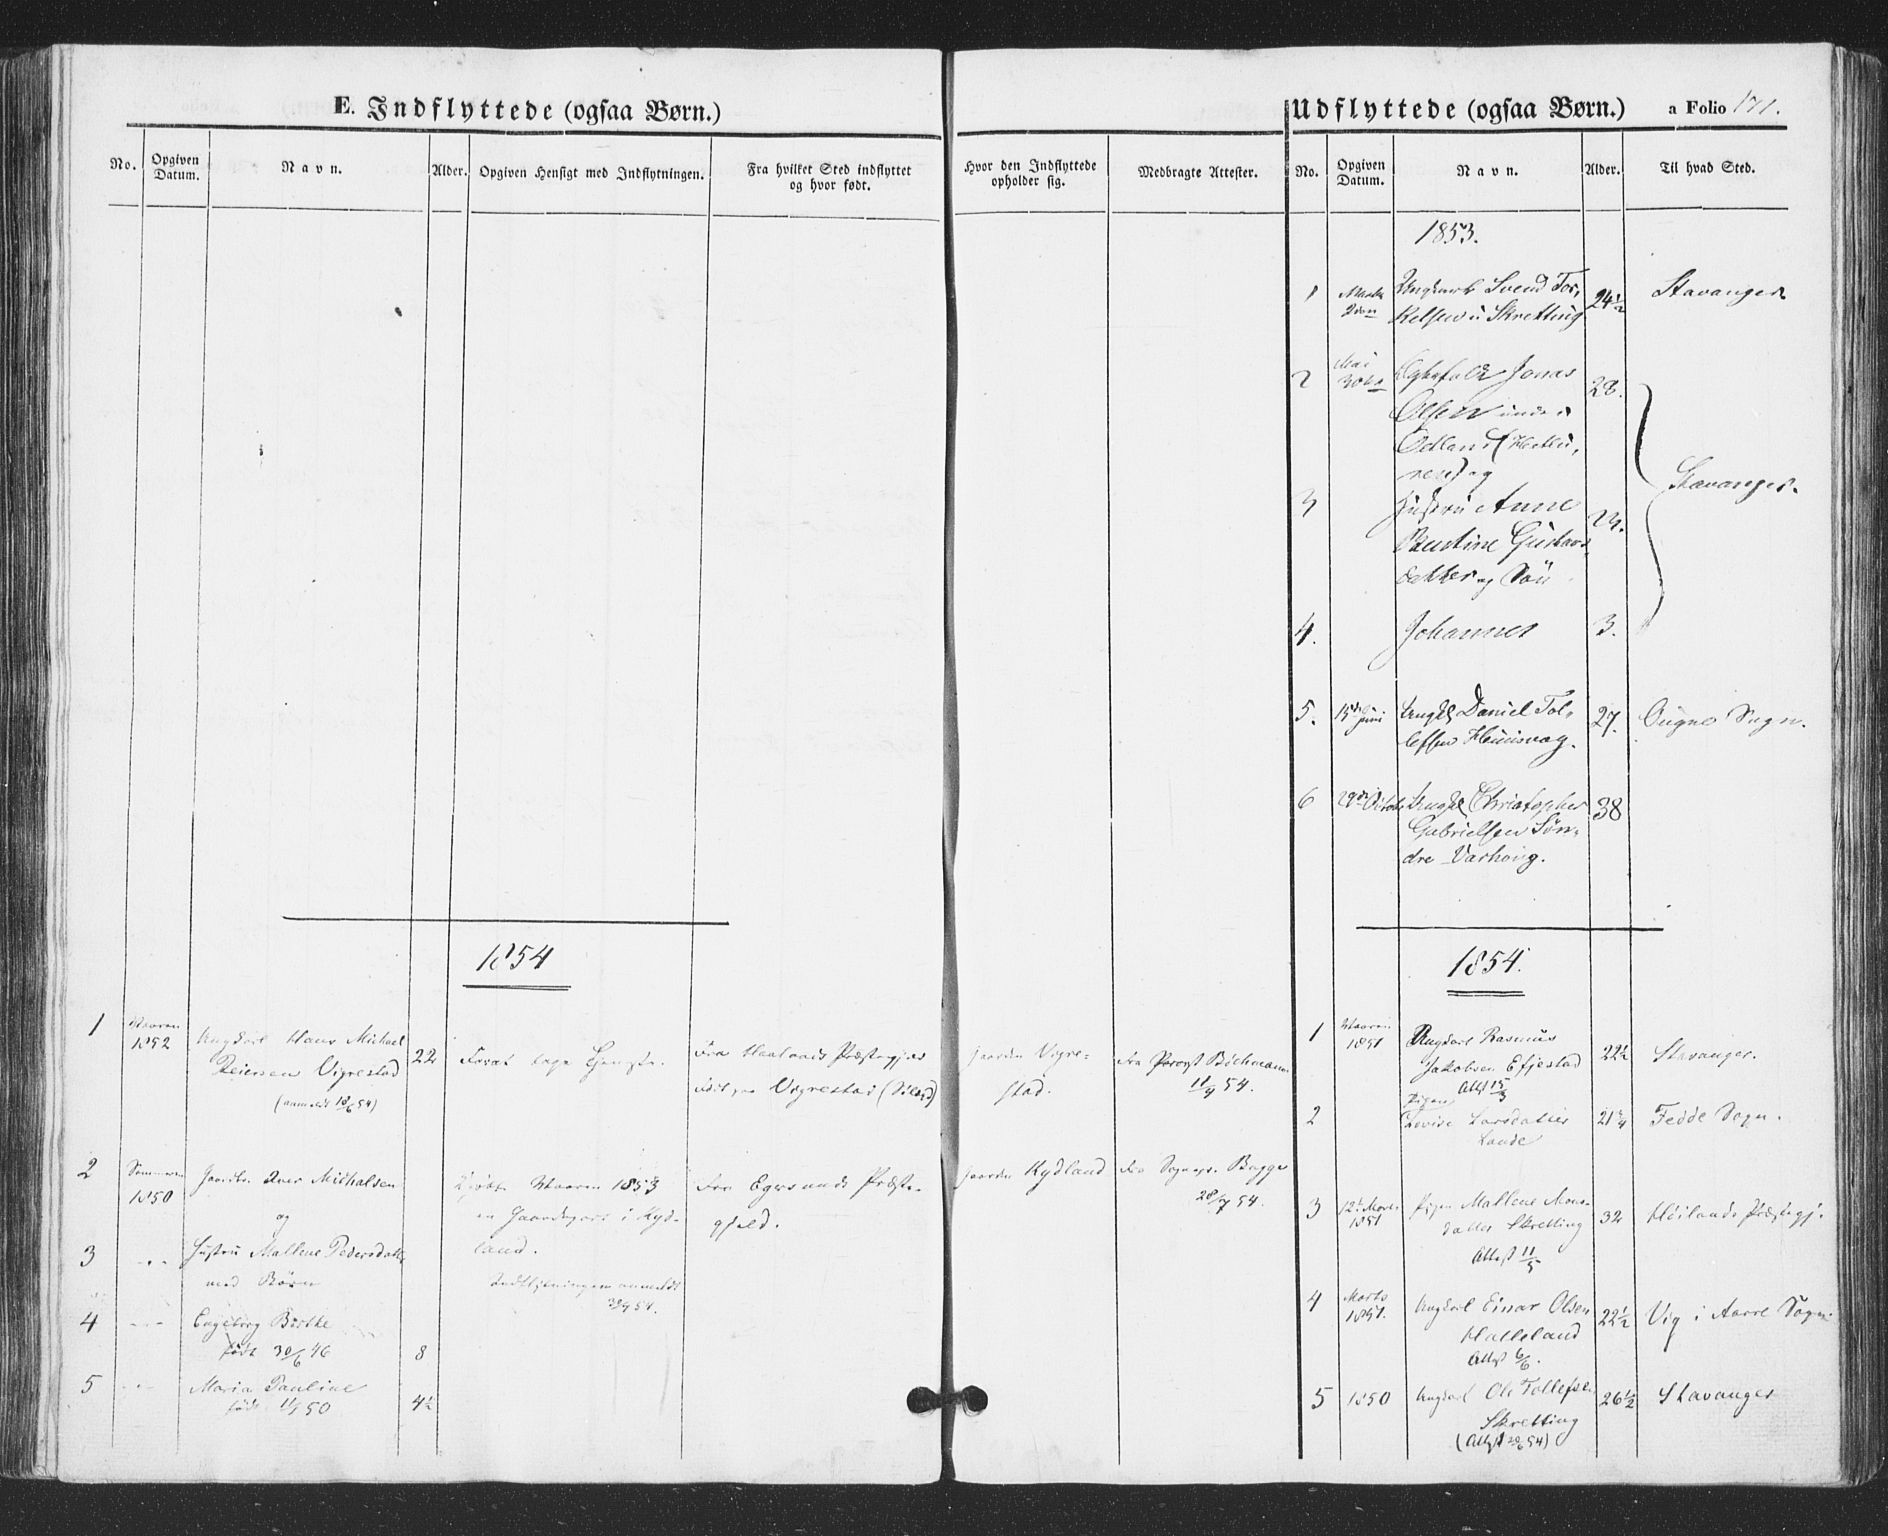 E. Indflyttede (ogsaa Børn.)
No.
Opgiven Datum.
Navn.
Alder.
Opgiven Hensigt med Indflytningen.
Fra hvilket Sted indflyttet og hvor født.
Hvor den Indflyttede opholder sig.
Medbragte Attester.
1854
1
Vaaren 1852
Ungkarl Hans Michael
Reiersen Vigrestad
(anmeldt 18/6 54)
22
For at tage Tjeneste.
Fra Haalands Præstegjæld
Født paa Vigrestad
Gaarden Vigre-
stad.
Fra Provst
11/4 54.
2
Sommeren 1850
Michalsen
og
Kjøbte Vaaren 1853
en Gaardepart i Kyd-
land.
Fra Egersunds Præste-
gjæld.
Gaarden Kydland
Fra Sognepr. Bugge
28/7 54.
3
Hustru Mallene Pedersdatter
med Børn
4
Engeborg Birthe
født 30/6 46
8
5
Maria Pauline
født 50
4½
Udflyttede (ogsaa Børn.)
a Folio 171.
No.
Opgiven Datum.
Navn.
Alder.
Til hvad Sted.
1853.
1
Ungkarl Svend Tor-
kelsen Skretting
24½
Stavanger
2
Mai 30te
Jonas
Olsen
Odland
og
28.
Stavanger.
3
Hustru Anne
Gustavs
datter og Søn
23.
4.
Johannes
3.
5.
15de Juni
Ungkl Daniel Tol-
lefsen
27.
Ougne Sogn.
6
29de Octob.
Ungkl Christopher
Gabrielsen Søn-
dre Varhoug.
38
1854.
1
Vaaren 1851
Ungkarl Rasmus
Jakobsen Efjestad
Attest 15/3
22½
Stavanger.
2
Pigen
Lovise Larsdatter
Lande
21¾
Fedde Sogn.
3
12te Marts 1851
Pigen Mallene Mons-
datter Skretting
Attest 11/5
32
Høilands Præstegj.
4
Marts 1851.
Ungkarl Einar Olsen
Halleland
Attest 6/6.
22½
Vig i Aarre Sogn.
5
1850
Ungkarl Ole Tollefsen
Skretting
(Attest 20/6 54)
26½
Stavanger